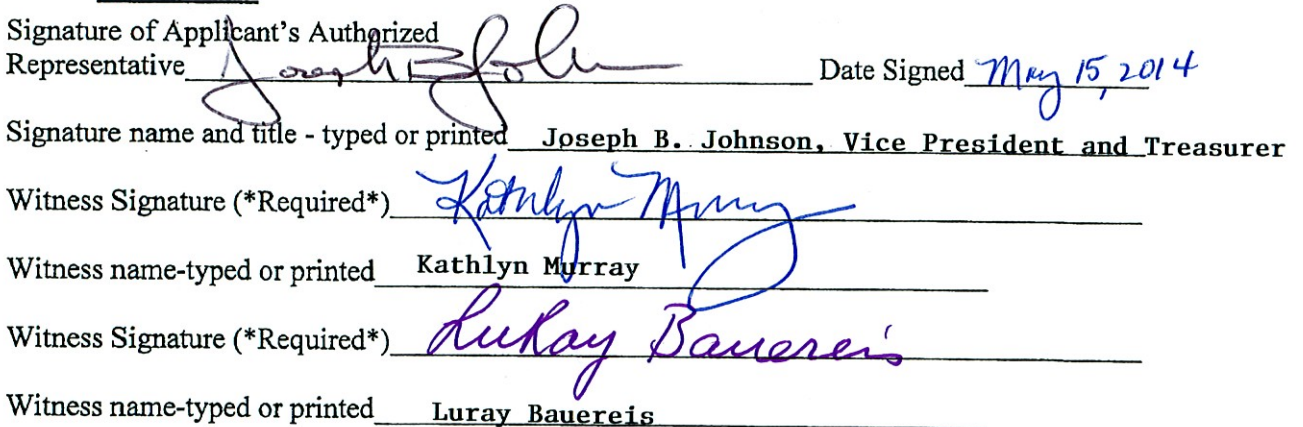 Signature of Applicant's Authorized
Representative Joseph B Joh Date Signed May 15, 2014
Signature name and title - typed or printed Joseph B. Johnson, Vice President and Treasurer
Witness Signature (*Required*) Kathlyn Murray
Witness name-typed or printed Kathlyn Murray
Witness Signature (*Required*) LuRay Bauereis
Witness name-typed or printed Luray Bauereis